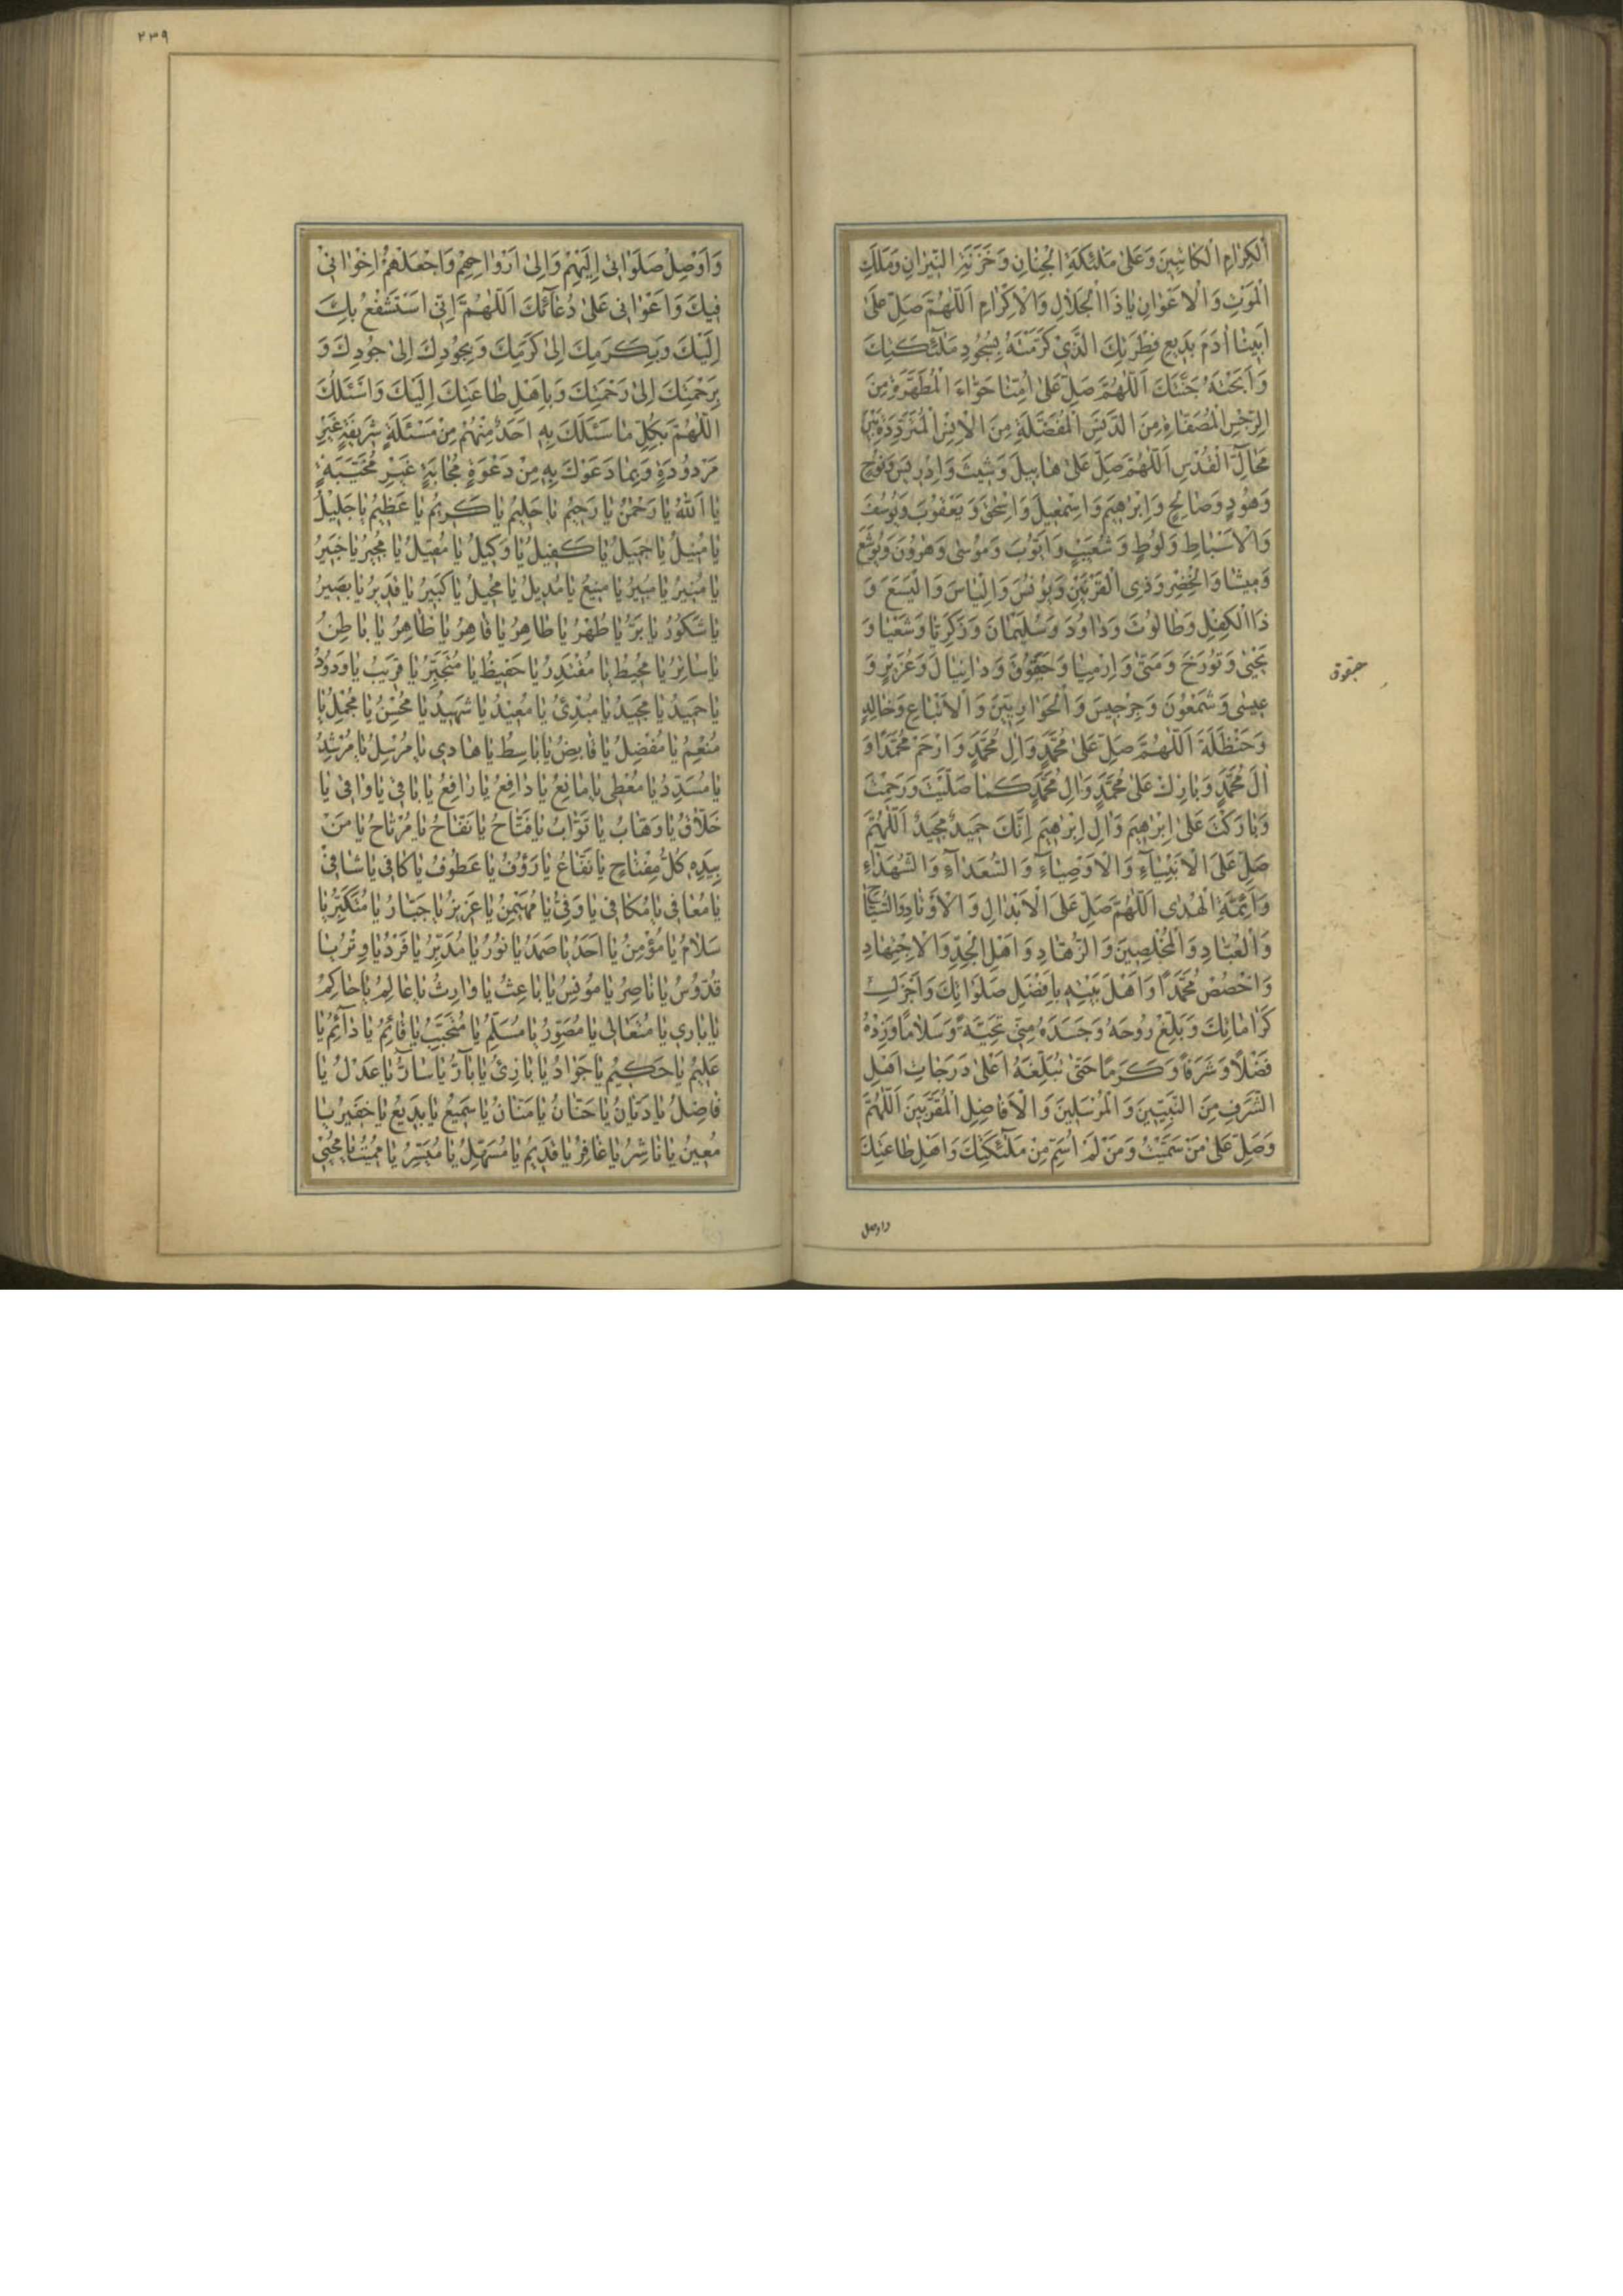 اَلْكِرٰامِ الْكٰاتِبِينَ وَعَلىٰ مَلٰئِكَةِ الْجِنٰانِ وَخَزَنَةِ النّيرٰانِ وَمَلَكِ
الْمَوْتِ وَالْاَعْوٰانِ يٰا ذَا الْجَلٰالِ وَالْاِكْرٰامِ اَللّٰهُمَّ صَلِّ عَلىٰ
اَبينٰا اٰدَمَ بَديعِ فِطْرَتِكَ الَّذي كَرَّمْتَهُ بِسُجُودِ مَلٰئِكَتِكَ
وَاَبَحْتَهُ جَنَّتَكَ اَللّٰهُمَّ صَلِّ عَلىٰ اُمِّنٰا حَوّٰاءَ الْمُطَهَّرَةِ مِنَ
الرِّجْسِ الْمُصَفّٰاةِ مِنَ الدَّنَسِ الْمُفَضَّلَةِ مِنَ الْاِنْسِ الْمُتَرَدِّدَةِ بَيْنَ
مَحٰالِّ الْقُدْسِ اَللّٰهُمَّ صَلِّ عَلىٰ هٰابيلَ وَشيثَ وَاِدْريسَ وَنُوحٍ
وَهُودٍ وَصٰالِحٍ وَاِبْرٰهيمَ وَاِسْمٰعيلَ وَاِسْحٰقَ وَيَعْقُوبَ وَيُوسُفَ
وَالْاَسْبٰاطِ وَلُوطٍ وَشُعَيْبٍ وَاَيُّوبَ وَمُوسىٰ وَهٰرُونَ وَيُوشَعَ
وَميشٰا وَالْخِضْرِ وَذِي الْقَرْنَيْنِ وَيُونُسَ وَاِلْيٰاسَ وَالْيَسَعَ وَ
ذَا الْكِفْلِ وَطٰالُوتَ وَدٰاوُدَ وَسُلَيْمٰانَ وَزَكَرِيّٰا وَشَعْيٰا وَ
يَحْيىٰ وَتُورَخَ وَمَتّىٰ وَاِرْمِيٰا وَحَيَقُوقَ وَدٰانِيٰالَ وَعُزَيْرٍ وَ
عيسىٰ وَشَمْعُونَ وَجِرْجيسَ وَالْحَوٰارِيّينَ وَالْاَتْبٰاعِ وَخٰالِدٍ
وَحَنْظَلَةَ اَللّٰهُمَّ صَلِّ عَلىٰ مُحَمَّدٍ وَاٰلِ مُحَمَّدٍ وَارْحَمْ مُحَمَّدًا وَ
اٰلَ مُحَمَّدٍ وَبٰارِكْ عَلىٰ مُحَمَّدٍ وَاٰلِ مُحَمَّدٍ كَمٰا صَلَّيْتَ وَرَحِمْتَ
وَبٰارَكْتَ عَلىٰ اِبْرٰهيمَ وَاٰلِ اِبْرٰهيمَ اِنَّكَ حَميدٌ مَجيدٌ اَللّٰهُمَّ
صَلِّ عَلَى الْاَنْبِيٰاۤءِ وَالْاَوْصِيٰاۤءِ وَالسُّعَدٰاۤءِ وَالشُّهَدٰاۤءِ
وَاَئِمَّةِ الْهُدىٰ اَللّٰهُمَّ صَلِّ عَلَى الْاَبْدٰالِ وَالْاَوْتٰادِ وَالسُّيّٰاحِ
وَالْعُبّٰادِ وَالْمُخْلِصينَ وَالزُّهّٰادِ وَاَهْلِ الْجِدِّ وَالْاِجْتِهٰادِ
وَاخْصُصْ مُحَمَّدًا وَاَهْلَ بَيْتِهِ بِاَفْضَلِ صَلَوٰاتِكَ وَاَجْزَلِ
كَرٰامٰاتِكَ وَبَلِّغْ رُوحَهُ وَجَسَدَهُ مِنّي تَحِيَّةً وَسَلٰامًا وَزِدْهُ
فَضْلًا وَشَرَفًا وَكَرَمًا حَتّىٰ تُبَلِّغَهُ اَعْلىٰ دَرَجٰاتِ اَهْلِ
الشَّرَفِ مِنَ النَّبِيّينَ وَالْمُرْسَلينَ وَالْاَفٰاضِلِ الْمُقَرَّبينَ اَللّٰهُمَّ
وَصَلِّ عَلىٰ مَنْ سَمَّيْتُ وَمَنْ لَمْ اُسَمِّ مِنْ مَلٰئِكَتِكَ وَاَهْلِ طٰاعَتِكَ
واوصل
۲۳۹
وَاَوْصِلْ صَلَوٰاتي اِلَيْهِمْ وَاِلىٰ اَرْوٰاحِهِمْ وَاجْعَلْهُمْ اِخْوٰاني
فيكَ وَاَعْوٰاني عَلىٰ دُعٰاۤئِكَ اَللّٰهُمَّ اِنّي اَسْتَشْفِعُ بِكَ
اِلَيْكَ وَبِكَرَمِكَ اِلىٰ كَرَمِكَ وَبِجُودِكَ اِلىٰ جُودِكَ وَ
بِرَحْمَتِكَ اِلىٰ رَحْمَتِكَ وَبِاَهْلِ طٰاعَتِكَ اِلَيْكَ وَاَسْئَلُكَ
اَللّٰهُمَّ بِكُلِّ مٰا سَئَلَكَ بِهِ اَحَدٌ مِنْهُمْ مِنْ مَسْئَلَةٍ شَريفَةٍ غَيْرِ
مَرْدُودَةٍ وَبِمٰا دَعَوْكَ بِهِ مِنْ دَعْوَةٍ مُجٰابَةٍ غَيْرِ مُخَيَّبَةٍ
يٰا اَللّٰهُ يٰا رَحْمٰنُ يٰا رَحيمُ يٰا حَليمُ يٰا كَريمُ يٰا عَظيمُ يٰا جَليلُ
يٰا مُنيلُ يٰا جَميلُ يٰا كَفيلُ يٰا وَكيلُ يٰا مُقيلُ يٰا مُجيرُ يٰا خَبيرُ
يٰا مُنيرُ يٰا مُبيرُ يٰا مَنيعُ يٰا مُديلُ يٰا مُحيلُ يٰا كَبيرُ يٰا قَديرُ يٰا بَصيرُ
يٰا شَكُورُ يٰا بَرُّ يٰا طُهْرُ يٰا طٰاهِرُ يٰا قٰاهِرُ يٰا ظٰاهِرُ يٰا بٰاطِنُ
يٰا سٰاتِرُ يٰا مُحيطُ يٰا مُقْتَدِرُ يٰا حَفيظُ يٰا مُتَجَبِّرُ يٰا قَريبُ يٰا وَدُودُ
يٰا حَميدُ يٰا مَجيدُ يٰا مُبْدِئُ يٰا مُعيدُ يٰا شَهيدُ يٰا مُحْسِنُ يٰا مُجْمِلُ يٰا
مُنْعِمُ يٰا مُفْضِلُ يٰا قٰابِضُ يٰا بٰاسِطُ يٰا هٰادي يٰا مُرْسِلُ يٰا مُرْشِدُ
يٰا مُسَدِّدُ يٰا مُعْطي يٰا مٰانِعُ يٰا دٰافِعُ يٰا رٰافِعُ يٰا بٰاقي يٰا وٰاقي يٰا
خَلّٰاقُ يٰا وَهّٰابُ يٰا تَوّٰابُ يٰا فَتّٰاحُ يٰا نَفّٰاحُ يٰا مُرْتٰاحُ يٰا مَنْ
بِيَدِهِ كُلُّ مِفْتٰاحٍ يٰا نَفّٰاعُ يٰا رَؤُفُ يٰا عَطُوفُ يٰا كٰافي يٰا شٰافي
يٰا مُعٰافي يٰا مُكٰافي يٰا وَفِيُّ يٰا مُهَيْمِنُ يٰا عَزيزُ يٰا جَبّٰارُ يٰا مُتَكَبِّرُ يٰا
سَلٰامُ يٰا مُؤْمِنُ يٰا اَحَدُ يٰا صَمَدُ يٰا نُورُ يٰا مُدَبِّرُ يٰا فَرْدُ يٰا وِتْرُ يٰا
قُدُّوسُ يٰا نٰاصِرُ يٰا مُونِسُ يٰا بٰاعِثُ يٰا وٰارِثُ يٰا عٰالِمُ يٰا حٰاكِمُ
يٰا بٰاري يٰا مُتَعٰالي يٰا مُصَوِّرُ يٰا مُسَلِّمُ يٰا مُتَحَبِّبُ يٰا قٰاۤئِمُ يٰا دٰاۤئِمُ يٰا
عَليمُ يٰا حَكيمُ يٰا جَوٰادُ يٰا بٰارِئُ يٰا بٰاۤرُّ يٰا سٰاۤرُّ يٰا عَدْلُ يٰا
فٰاضِلُ يٰا دَيّٰانُ يٰا حَنّٰانُ يٰا مَنّٰانُ يٰا سَميعُ يٰا بَديعُ يٰا خَفيرُ يٰا
مُعينُ يٰا نٰاشِرُ يٰا غٰافِرُ يٰا قَديمُ يٰا مُسَهِّلُ يٰا مُيَسِّرُ يٰا مُميتُ يٰا مُحْيي